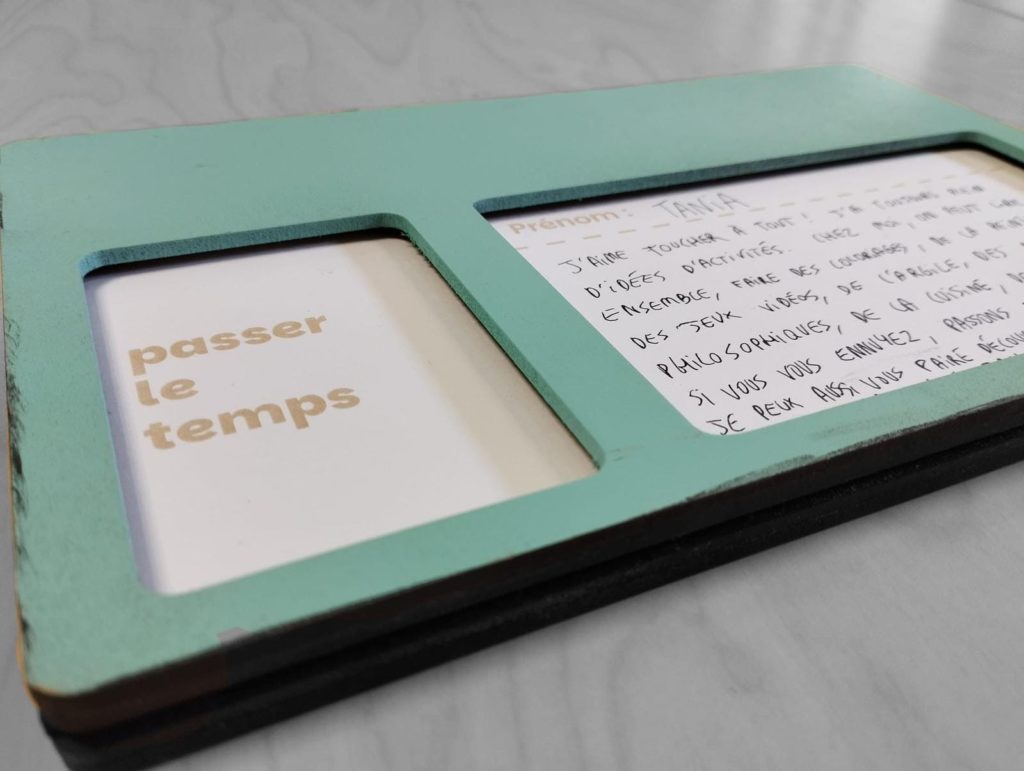 passer
le
temps
Prénom : TANIA
J'AIME TOUCHER À TOUT ! J'AI TOUJOURS PLEIN
D'IDÉES D'ACTIVITÉS. CHEZ MOI, ON PEUT LIRE
ENSEMBLE, FAIRE DES COLORIAGES, DE LA PEINT
DES JEUX VIDÉOS, DE L'ARGILE, DES
PHILOSOPHIQUES, DE LA CUISINE,
SI VOUS VOUS ENNUYEZ, PASSONS
JE PEUX AUSSI VOUS FAIRE DÉCOU